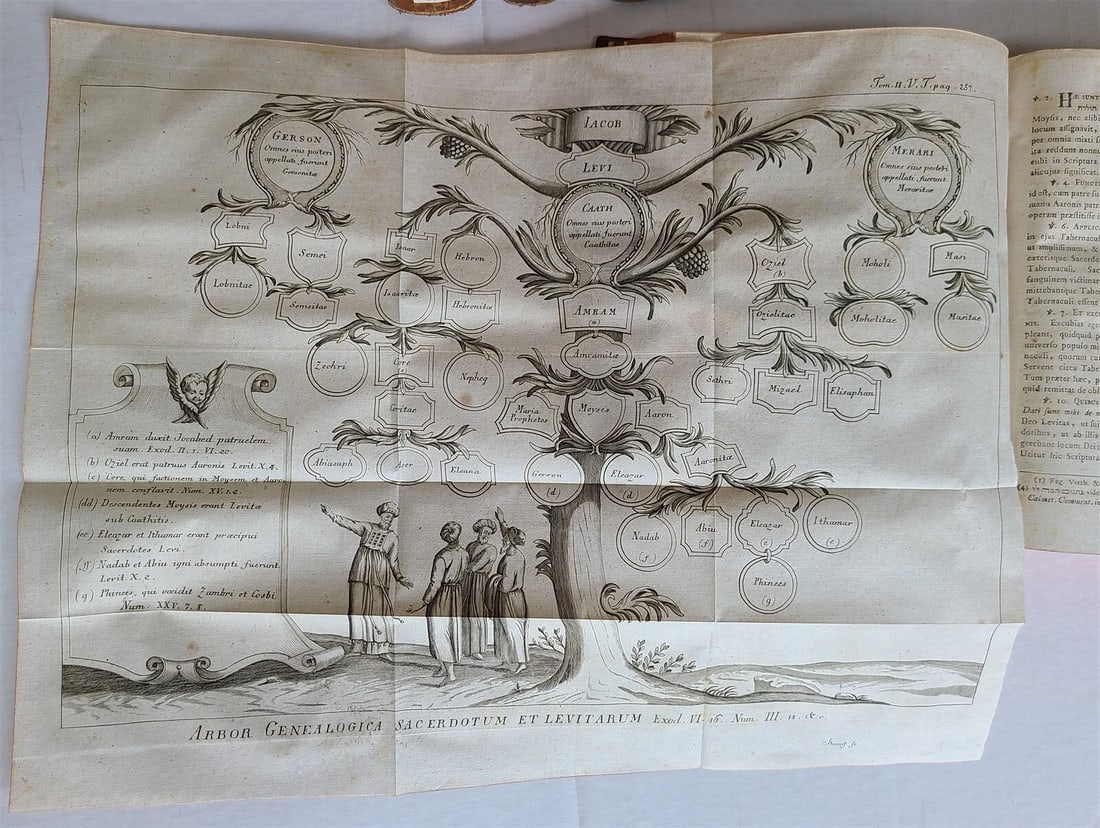 Tom. II. V. T. pag. 257.
IACOB
LEVI
GERSON
Omnes eius posteri
appellati fuerunt
Gersonitæ
CAATH
Omnes eius posteri
appellati fuerunt
Caathitae
MERARI
Omnes eius posteri
appellati fuerunt
Meraritae
Lobni
Semei
Isaar
Hebron
Oziel
(b)
Moholi
Masi
Lobnitae
Semeitae
Isaaritæ
Hebronitæ
AMRAM
(a)
Ozielitae
Moholitae
Masitae
Zechri
Core
Nepheg
Amramitæ
Sethri
Mizael
Elisaphan
Coritae
Maria
Prophetes
Moyses
Aaron
Abiasaph
Aser
Elcana
Gerson
(d)
Eleazar
(d)
Aaronitæ
Nadab
(f)
Abiu
(f)
Eleazar
(e)
Ithamar
(e)
Phinees
(g)
(a) Amram duxit Jocabed patruelem
suam. Exod. II. 1. VI. 20.
(b) Oziel erat patruus Aaronis Levit. X. 4.
(c) Core, qui factionem in Moysem et Aaro-
nem conflavit. Num. XV. 1. 2.
(dd) Descendentes Moysis erant Levitæ
sub Caathitis.
(ee) Eleazar et Ithamar erant præcipui
Sacerdotes Levi.
(ff) Nadab et Abiu igni absumpti fuerunt
Levit. X. 2.
(g) Phinees, qui occidit Zambri et Cosbi
Num. XXV. 7. 8.
ARBOR GENEALOGICA SACERDOTUM ET LEVITARUM Exod. VI. 16. Num. III. 14. &c.
℣. 2. HÆ SUNT
Moysis, nec alibi
locum assignavit,
per omnia mixti
ita reddunt nonn
eubi in Scriptura
alicujus significat.
℣. 4. FUNCTI
id est, cum patre
operam præstitisse
℣. 6. APPLIC
in ejus Tabernacul
ut amplissimum, &
cæterisque Sacerdo
Tabernaculi. Sac
sanguinem victimar
mittebantque Taber
Tabernaculi essent
℣. 7. ET EXC
NIS. Excubias
pleant, quidquid
universo populo
naculi, quorum
Servent circa Taber
Tum præter hæc,
quid remittat de
℣. 10. QUIBUS
Dati sunt mihi de
Deo Levitas, ut
dotibus, ut ab illis
gerebant locum Dei;
Utitur hic Scriptura